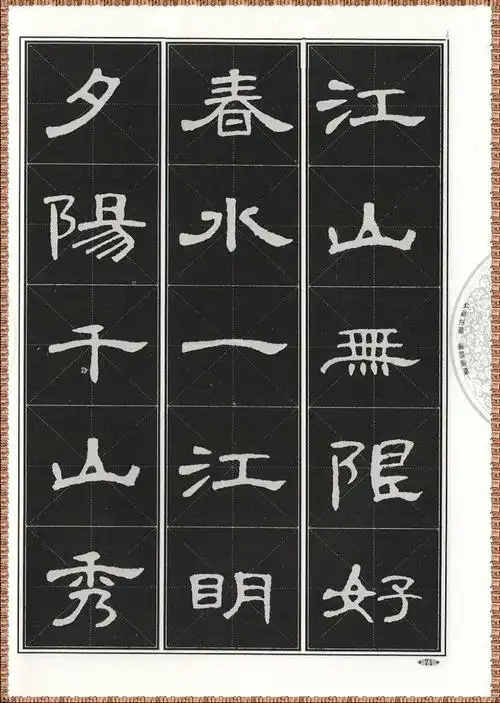 江山無限好
春水一江明
夕陽千山秀
71